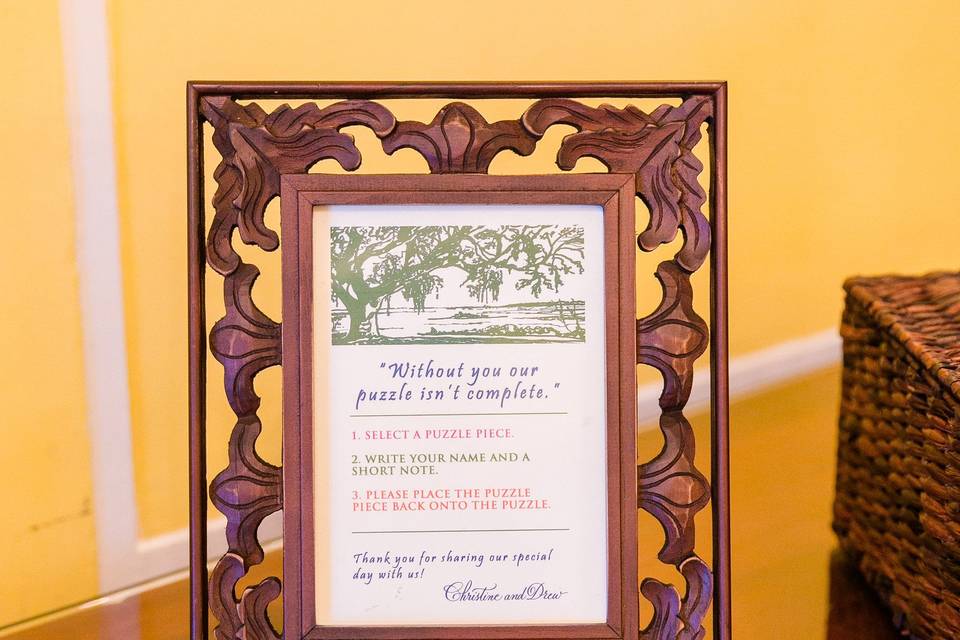 "Without you our
puzzle isn't complete."
1. SELECT A PUZZLE PIECE.
2. WRITE YOUR NAME AND A
SHORT NOTE.
3. PLEASE PLACE THE PUZZLE
PIECE BACK ONTO THE PUZZLE.
Thank you for sharing our special
day with us!
Christine and Drew